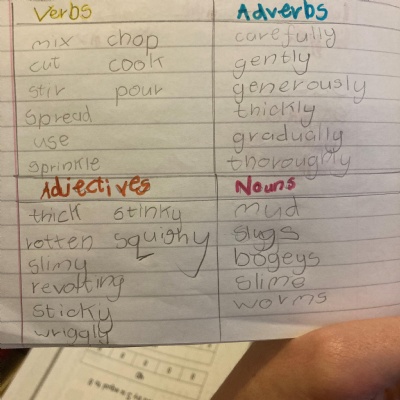 Verbs
mix chop
cut cook
stir pour
Spread
use
sprinkle
Adverbs
carefully
gently
generously
thickly
gradually
thoroughly
Adjectives
thick stinky
rotten squishy
slimy
revolting
sticky
wriggly
Nouns
mud
slugs
bogeys
slime
worms